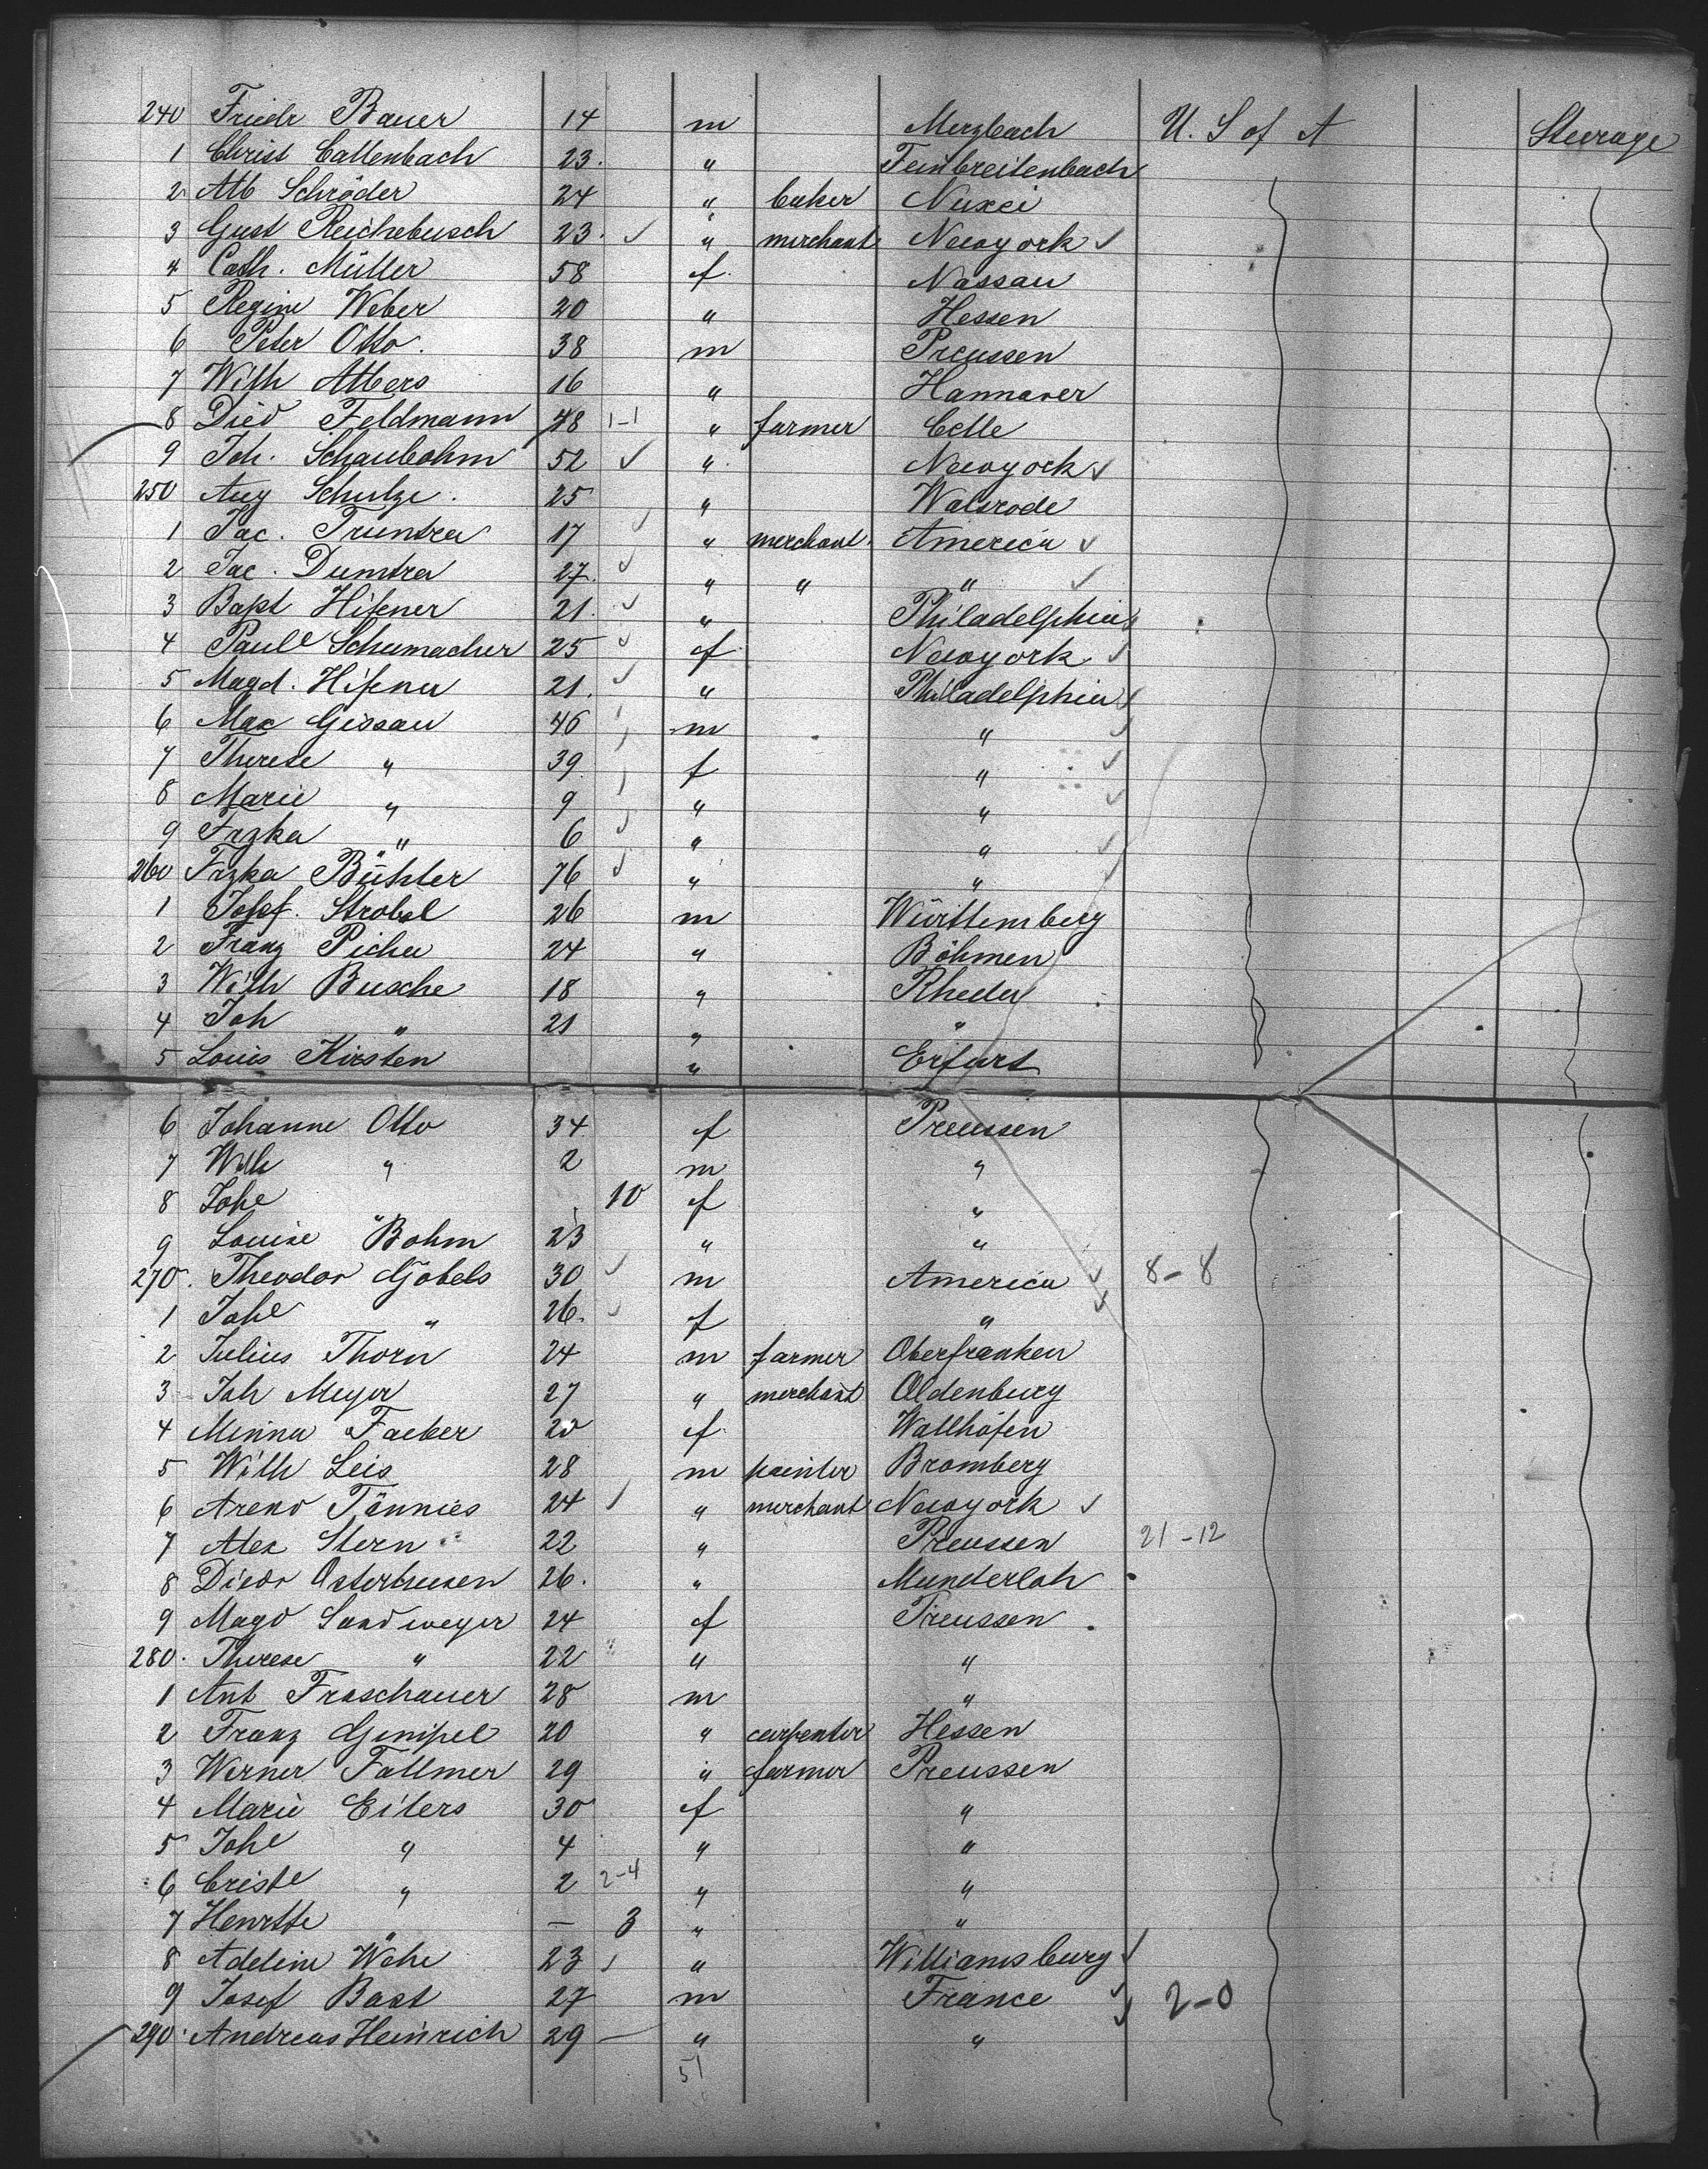 240 Friedr Bauer 14 m Merzbach U. S of A Steerage
1 Christ Callenbach 23. " Feinbreitenbach
2 Alb Schröder 24 " baker Nuxei
3 Gust Reichebusch 23. ✓ " merchant Newyork ✓
4 Cath. Müller 58 f. Nassau
5 Regine Weber 20 " Hessen
6 Peter Otto. 38 m Preussen
7 Wilh Albers 16 " Hannover
8 Died Feldmann 48 1-1 " farmer Celle
9 Joh. Schaubohm 52 ✓ " Newyork ✓
250 Aug Schulze. 25 " Walsrode
1 Jac. 17 ✓ " merchant. America ✓
2 Jac. 27. ✓ " " " ✓
3 Bapt Hifener 21. ✓ " Philadelphia ✓
4 Paule Schumacher 25 ✓ f Newyork ✓
5 Magd. Hifener 21. ✓ " Philadelphia ✓
6 Max Gissau 46 m " ✓
7 Therese " 39. f " ✓
8 Marie " 9 " " ✓
9 Frzka " 6 ✓ " " ✓
260 Frzka Bühler 76 ✓ " " ✓
1 Josef. Strobel 26 m Württemberg
2 Franz Picha 24 " Böhmen
3 Wilh Busche 18 " Rheder
4 Joh " 21 " "
5 Louis Kirsten " Erfurt
6 Johanne Otto 34 f Preussen
7 Wilh " 2 m "
8 Johe " 10 f "
9 Louise Bohm 23 " "
270. Theodor Göbels 30 ✓ m America ✓ 8-8
1 Johe " 26. ✓ f " ✓
2 Julius Thorn 24 m farmer Oberfranken
3 Joh Meyer 27 " merchant Oldenburg
4 Minna Facker 20 f. Wallhöfen
5 Wilh Leis 28 m painter Bromberg
6 Areno Tönnies 24 ✓ " merchant Newyork ✓
7 Alex Stern 22 " Preussen 21-12
8 Diedr Osterhusen 26. " Munderloh
9 Magd Sandweger 24 f Preussen.
280. Therese " 22 " "
1 Ant Froschauer 28 m "
2 Franz Gimpel 20 " carpenter Hessen
3 Werner Follmer 29 " farmer Preussen
4 Marie Eilers 30 f "
5 Johe " 4 " "
6 Criste " 2 2-4 " "
7 Henrtte " — 3 " "
8 Adeline Wehe 23 ✓ " Williamsburg ✓
9 Josef Bast 27 m France ✓ 2-0
290. Andreas Heinrich 29 — " "
51